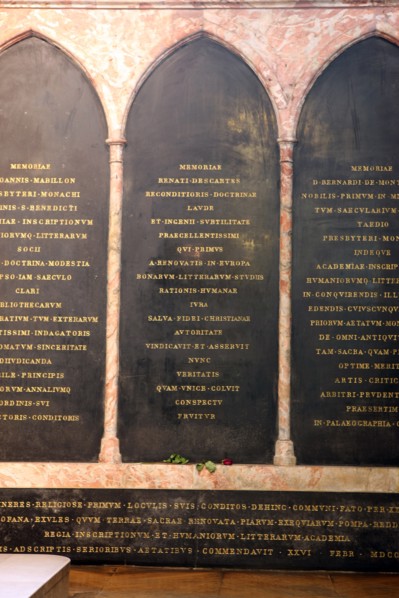 MEMORIAE
OANNIS·MABILLON
SBYTERI·MONACHI
INIS·S·BENEDICTI
IAE·INSCRIPTIONVM
IORVMQ·LITTERARVM
SOCII
·DOCTRINA·MODESTIA
PSO·IAM·SAECVLO
CLARI
BLIOTHECARVM
RATIVM·TVM·EXTERARVM
TISSIMI·INDAGATORIS
OMATVM·SINCERITATE
DIIVDICANDA
ILE·PRINCIPIS
ORVM·ANNALIVMQ
ORDINIS·SVI
CTORIS·CONDITORIS
MEMORIAE
RENATI·DESCARTES
RECONDITIORIS·DOCTRINAE
LAVDE
ET·INGENII·SVBTILITATE
PRAECELLENTISSIMI
QVI·PRIMVS
A·RENOVATIS·IN·EVROPA
BONARVM·LITTERARVM·STVDIIS
RATIONIS·HVMANAE
IVRA
SALVA·FIDEI·CHRISTIANAE
AVTORITATE
VINDICAVIT·ET·ASSERVIT
NVNC
VERITATIS
QVAM·VNICE·COLVIT
CONSPECTV
FRVITVR
MEMORIAE
D·BERNARDI·DE·MONT
NOBILIS·PRIMVM·IN·M
TVM·SAECVLARIVM·
TAEDIO
PRESBYTERI·MON
INDEQVE
ACADEMIAE·INSCRIP
HVMANIORVMQ·LITTER
IN·CONQVIRENDIS·ILL
EDENDIS·CVIVSCVNQ
PRIORVM·AETATVM·MO
DE·OMNI·ANTIQVIT
TAM·SACRA·QVAM·P
OPTIME·MERIT
ARTIS·CRITIC
ARBITRI·PRVDENT
PRAESERTIM
IN·PALAEOGRAPHIA·G
NERES·RELIGIOSE·PRIMVM·LOCVLIS·SVIS·CONDITOS·DEHINC·COMMVNI·FATO·PER·XX
OPANA·EXVLES·QVVM·TERRAE·SACRAE·RHNOVATA·PIARVM·EXEQVIARVM·POMPA·REDD
REGIA·INSCRIPTIONVM·ET·HVMANIORVM·LITTERARVM·ACADEMIA
IS·ADSCRIPTIS·SERIORIBVS·AETATIBVS·COMMENDAVIT·XXVI·FEBR·MDCC